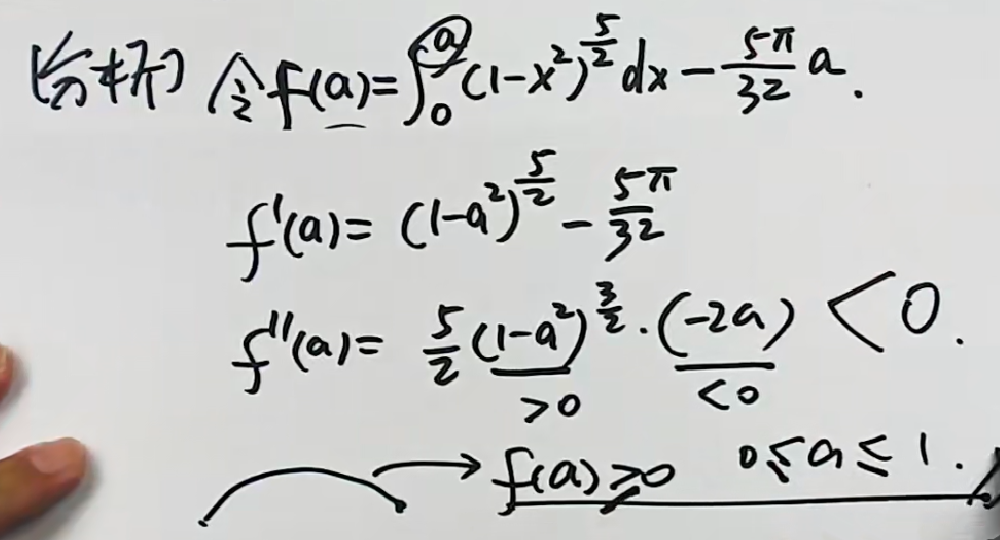 [分析] 令f(a)=∫₀ᵃ(1-x²)^(5/2)dx-5π/32 a.
f'(a)=(1-a²)^(5/2)-5π/32
f''(a)=5/2(1-a²)^(3/2)·(-2a)<0.
>0 <0
f(a)≥0 0≤a≤1.